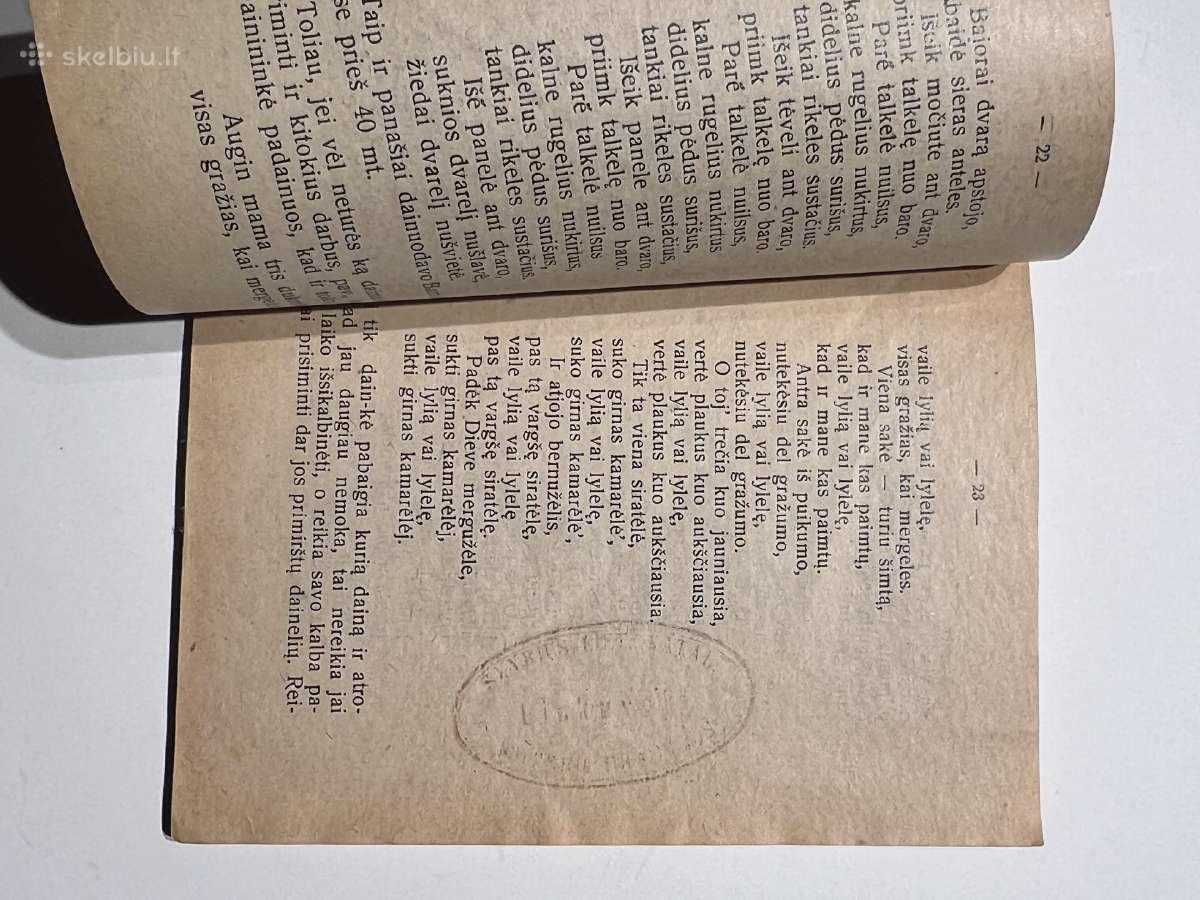 skelbiu.lt
— 22 —
Bajorai dvarą apstojo,
baidė sieras anteles.
išeik močiute ant dvaro,
priimk talkelę nuo baro.
Parē talkelė nuilsus,
kalne rugelius nukirtus,
didelius pėdus surišus,
tankiai rikeles sustačius.
Išeik tėveli ant dvaro,
priimk talkelę nuo baro.
Parē talkelė nuilsus,
kalne rugelius nukirtus
didelius pėdus surišus,
tankiai rikeles sustačius,
Išeik panele ant dvaro,
priimk talkelę nuo baro.
Parē talkelė nuilsus
kalne rugelius nukirtus,
didelius pėdus surišus,
tankiai rikeles sustačius.
Išē panelė ant dvaro,
suknios dvarelį nušlavė,
žiedai dvarelį nušvietė.
Taip ir panašiai dainuodavo
se prieš 40 mt.
Toliau, jei vėl neturės ką
iminti ir kitokius darbus,
aininkė padainuos, kad ir
Augin mama tris
visas gražias, kai
— 23 —
vaile lylių vai lylelę,
visas gražias, kai mergeles.
Viena sakė — turiu šimtą,
kad ir mane kas paimtų,
vaile lylią vai lylelę,
kad ir mane kas paimtų.
Antra sakė iš puikumo,
nutekėsiu del gražumo,
vaile lylią vai lylelę,
nutekėsiu del gražumo.
O toj' trečia kuo jauniausia,
vertė plaukus kuo aukščiausia,
vaile lylią vai lylelę,
vertė plaukus kuo aukščiausia.
Tik ta viena siratėlė,
suko girnas kamarėlė',
vaile lylią vai lylelę,
suko girnas kamarėlė',
Ir atjojo bernužėlis,
pas tą vargšę siratėlę,
vaile lylią vai lylelę
pas tą vargšę siratėlę.
Padėk Dieve mergužėle,
sukti girnas kamarėlėj,
vaile lylią vai lylelę,
sukti girnas kamarėlėj.
tik dain-kė pabaigia kurią dainą ir atro-
ad jau daugiau nemoka, tai nereikia jai
laiko išsikalbinėti, o reikia savo kalba pa-
ai prisiminti dar jos primirštų dainelių. Rei-